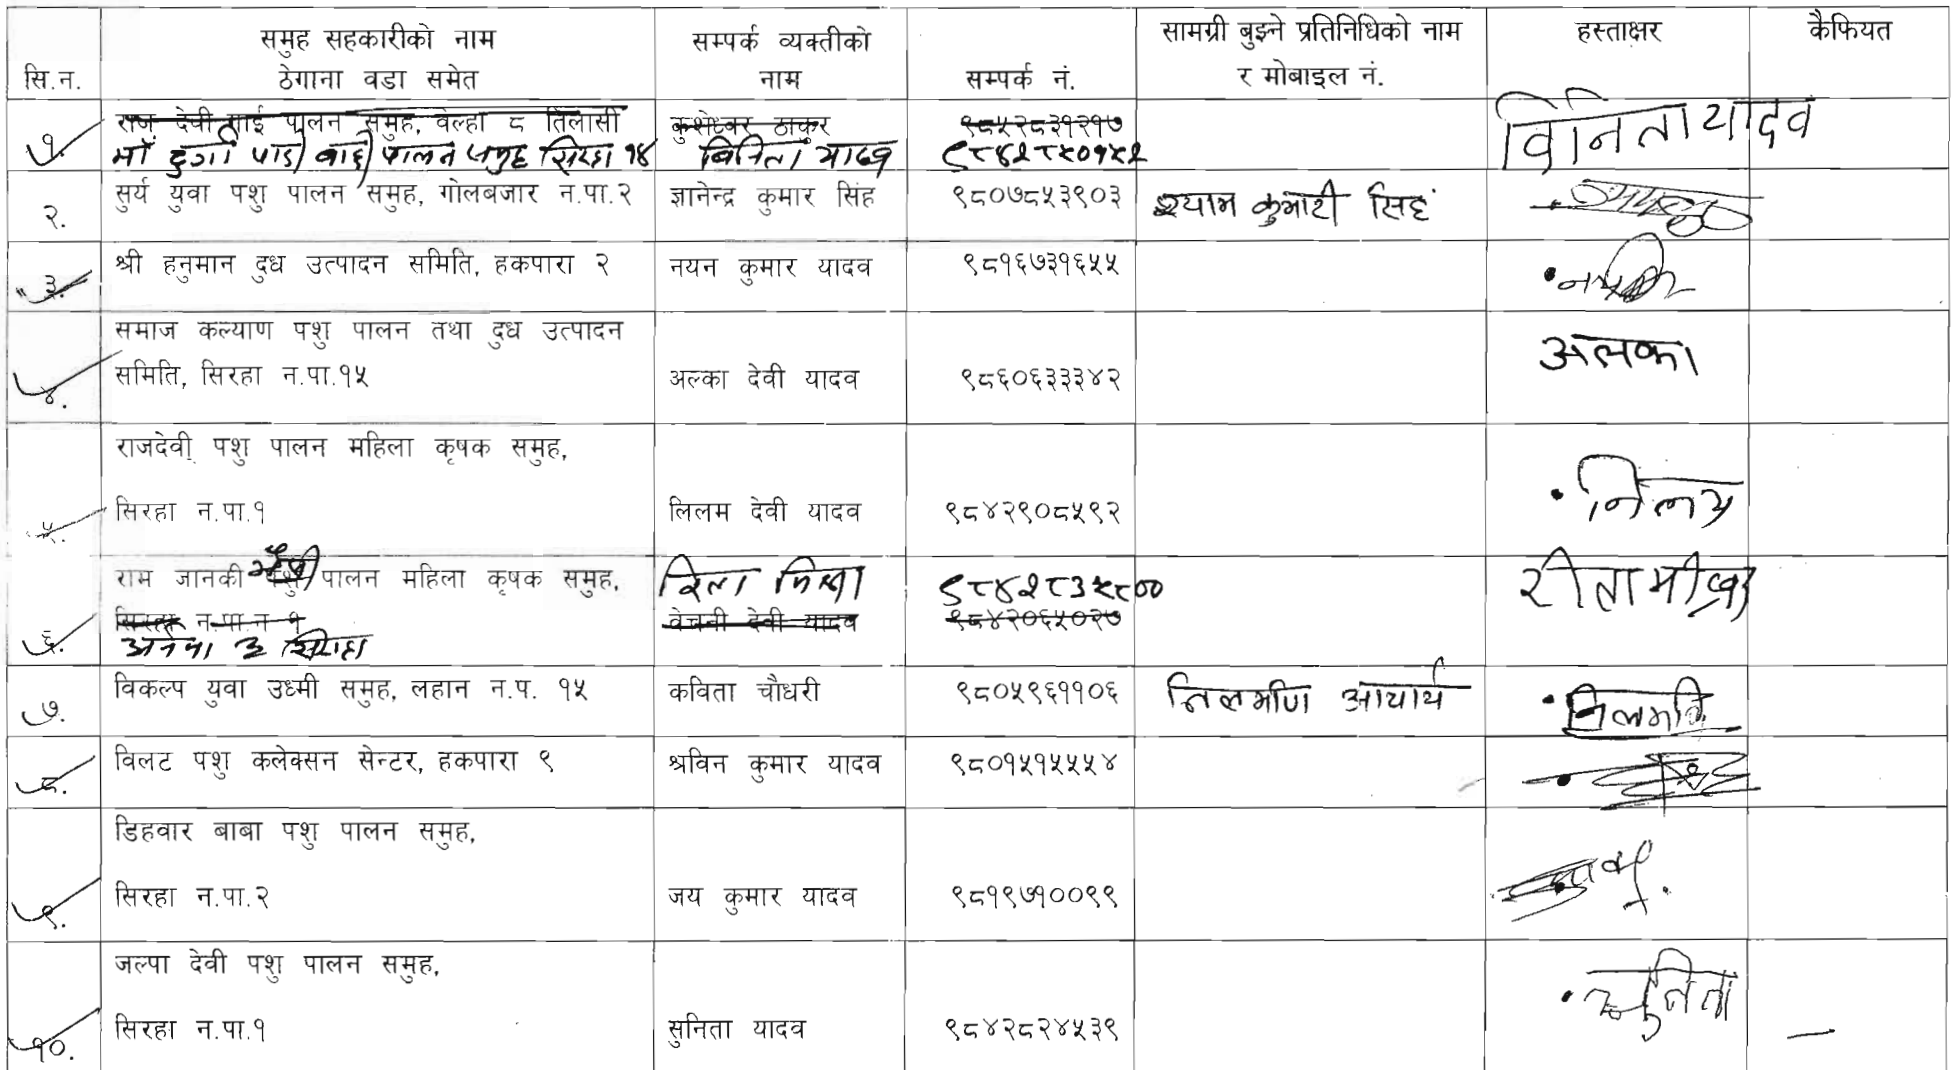 सि.न. समुह सहकारीको नाम ठेगाना वडा समेत सम्पर्क व्यक्तीको नाम सम्पर्क नं. सामग्री बुझ्ने प्रतिनिधिको नाम र मोबाइल नं. हस्ताक्षर कैफियत
१. राज देवी गाई पालन समुह, वेल्हा ८ तिलासी कुशेध्वर ठाकुर ९८५२८३१२१७ विनिता यादव
माँ दुर्गा पाडा पाडी पालन समुह सिरहा १४ बिनिता यादव ९८४२८५०१५२
२. सुर्य युवा पशु पालन समुह, गोलबजार न.पा.२ ज्ञानेन्द्र कुमार सिंह ९८०७८५३९०३ श्याम कुमारी सिहं
३. श्री हनुमान दुध उत्पादन समिति, हकपारा २ नयन कुमार यादव ९८१६७३१६५५
समाज कल्याण पशु पालन तथा दुध उत्पादन
४. समिति, सिरहा न.पा.१५ अल्का देवी यादव ९८६०६३३३४२ अलका
राजदेवी पशु पालन महिला कृषक समुह,
५. सिरहा न.पा.१ लिलम देवी यादव ९८४२९०८५९२ निलम
राम जानकी भैसी पालन महिला कृषक समुह, रिता मिश्रा ९८४२८३५८०० रीता मीश्रा
६. सिरहा न.पा न १ वेचनी देवी यादव ९८४२०६५०२७
३ सिरहा
७. विकल्प युवा उध्मी समुह, लहान न.प. १५ कविता चौधरी ९८०५९६११०६ निलमणि आचार्य निलमणि
८. विलट पशु कलेक्सन सेन्टर, हकपारा ९ श्रविन कुमार यादव ९८०१५१५५५४
डिहवार बाबा पशु पालन समुह,
९. सिरहा न.पा.२ जय कुमार यादव ९८१९७१००९९
जल्पा देवी पशु पालन समुह,
१०. सिरहा न.पा.१ सुनिता यादव ९८४२८२४५३९ सुनिता —